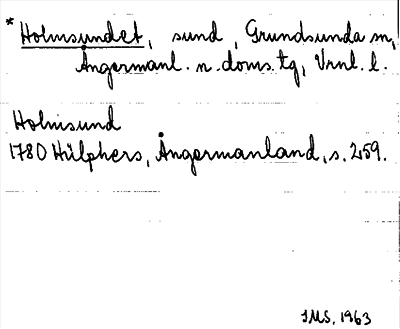 * Holmsundet, sund, Grundsunda sn,
Ångermanl. n. doms. tg, Vrnl. l.
Holmsund
1780 Hülphers, Ångermanland, s. 259.
JMS, 1963